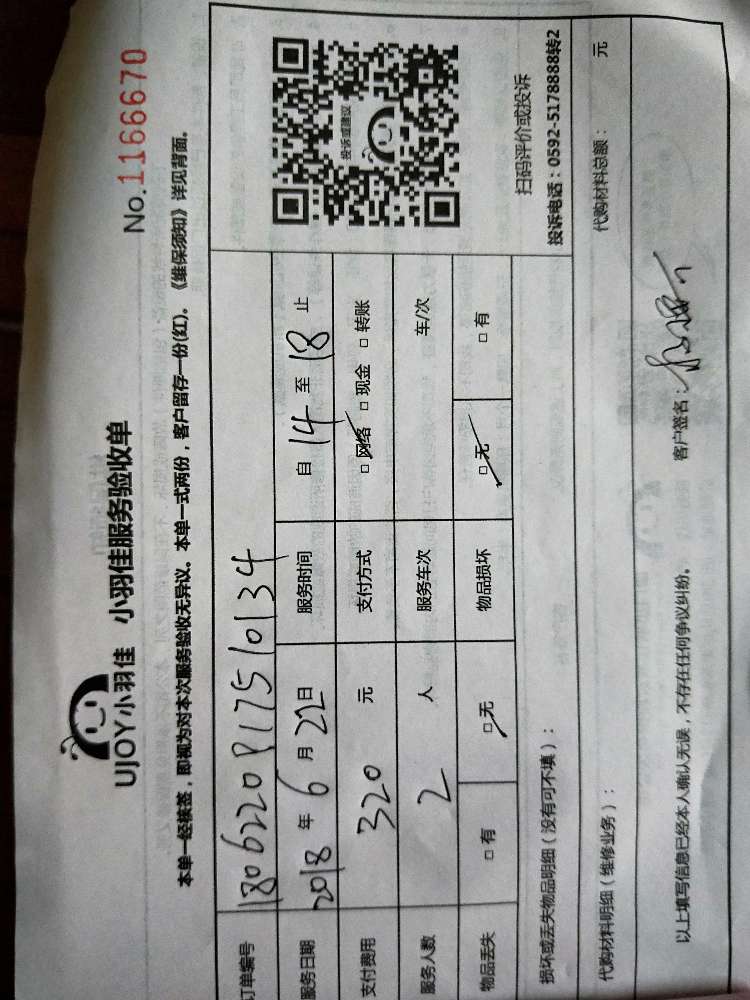 UJOY小羽佳 小羽佳服务验收单
No.1166670
本单一经核签，即视为对本次服务验收无异议。本单一式两份，客户留存一份(红)。《维保须知》详见背面。
订单编号 1806220817510134
服务日期 2018年6月22日 服务时间 自14至18止
支付费用 320元 支付方式 □网络 □现金 □转账
服务人数 2人 服务车次 车/次
物品丢失 □有 □无 物品损坏 □无 □有
投诉或建议
扫码评价或投诉
投诉电话：0592-5178888转2
损坏或丢失物品明细（没有可不填）：
代购材料明细（维修业务）： 代购材料总额： 元
以上填写信息已经本人确认无误，不存在任何争议纠纷。 客户签名：